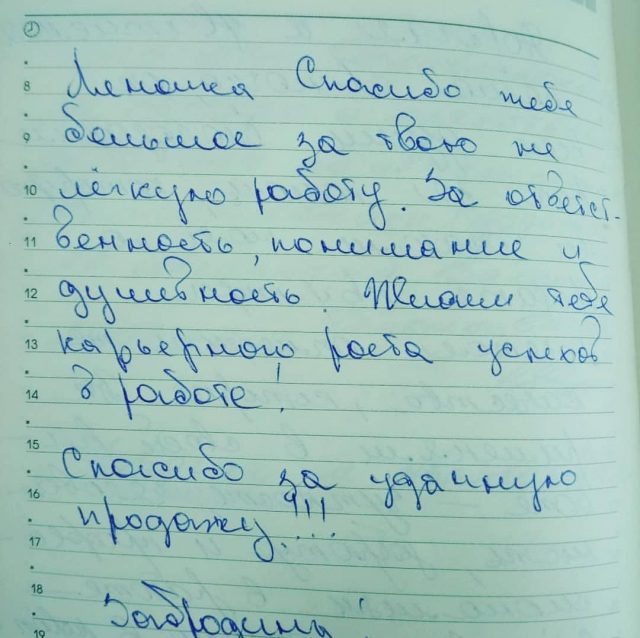 8 Леночка Спасибо тебе
9 большое за твою не
10 лёгкую работу. За ответст-
11 венность, понимание и
12 душевность. Желаем тебе
13 карьерного роста успехов
14 в работе!
15
Спасибо за удачную
16
продажу!!!
17
18
Забродины!
19